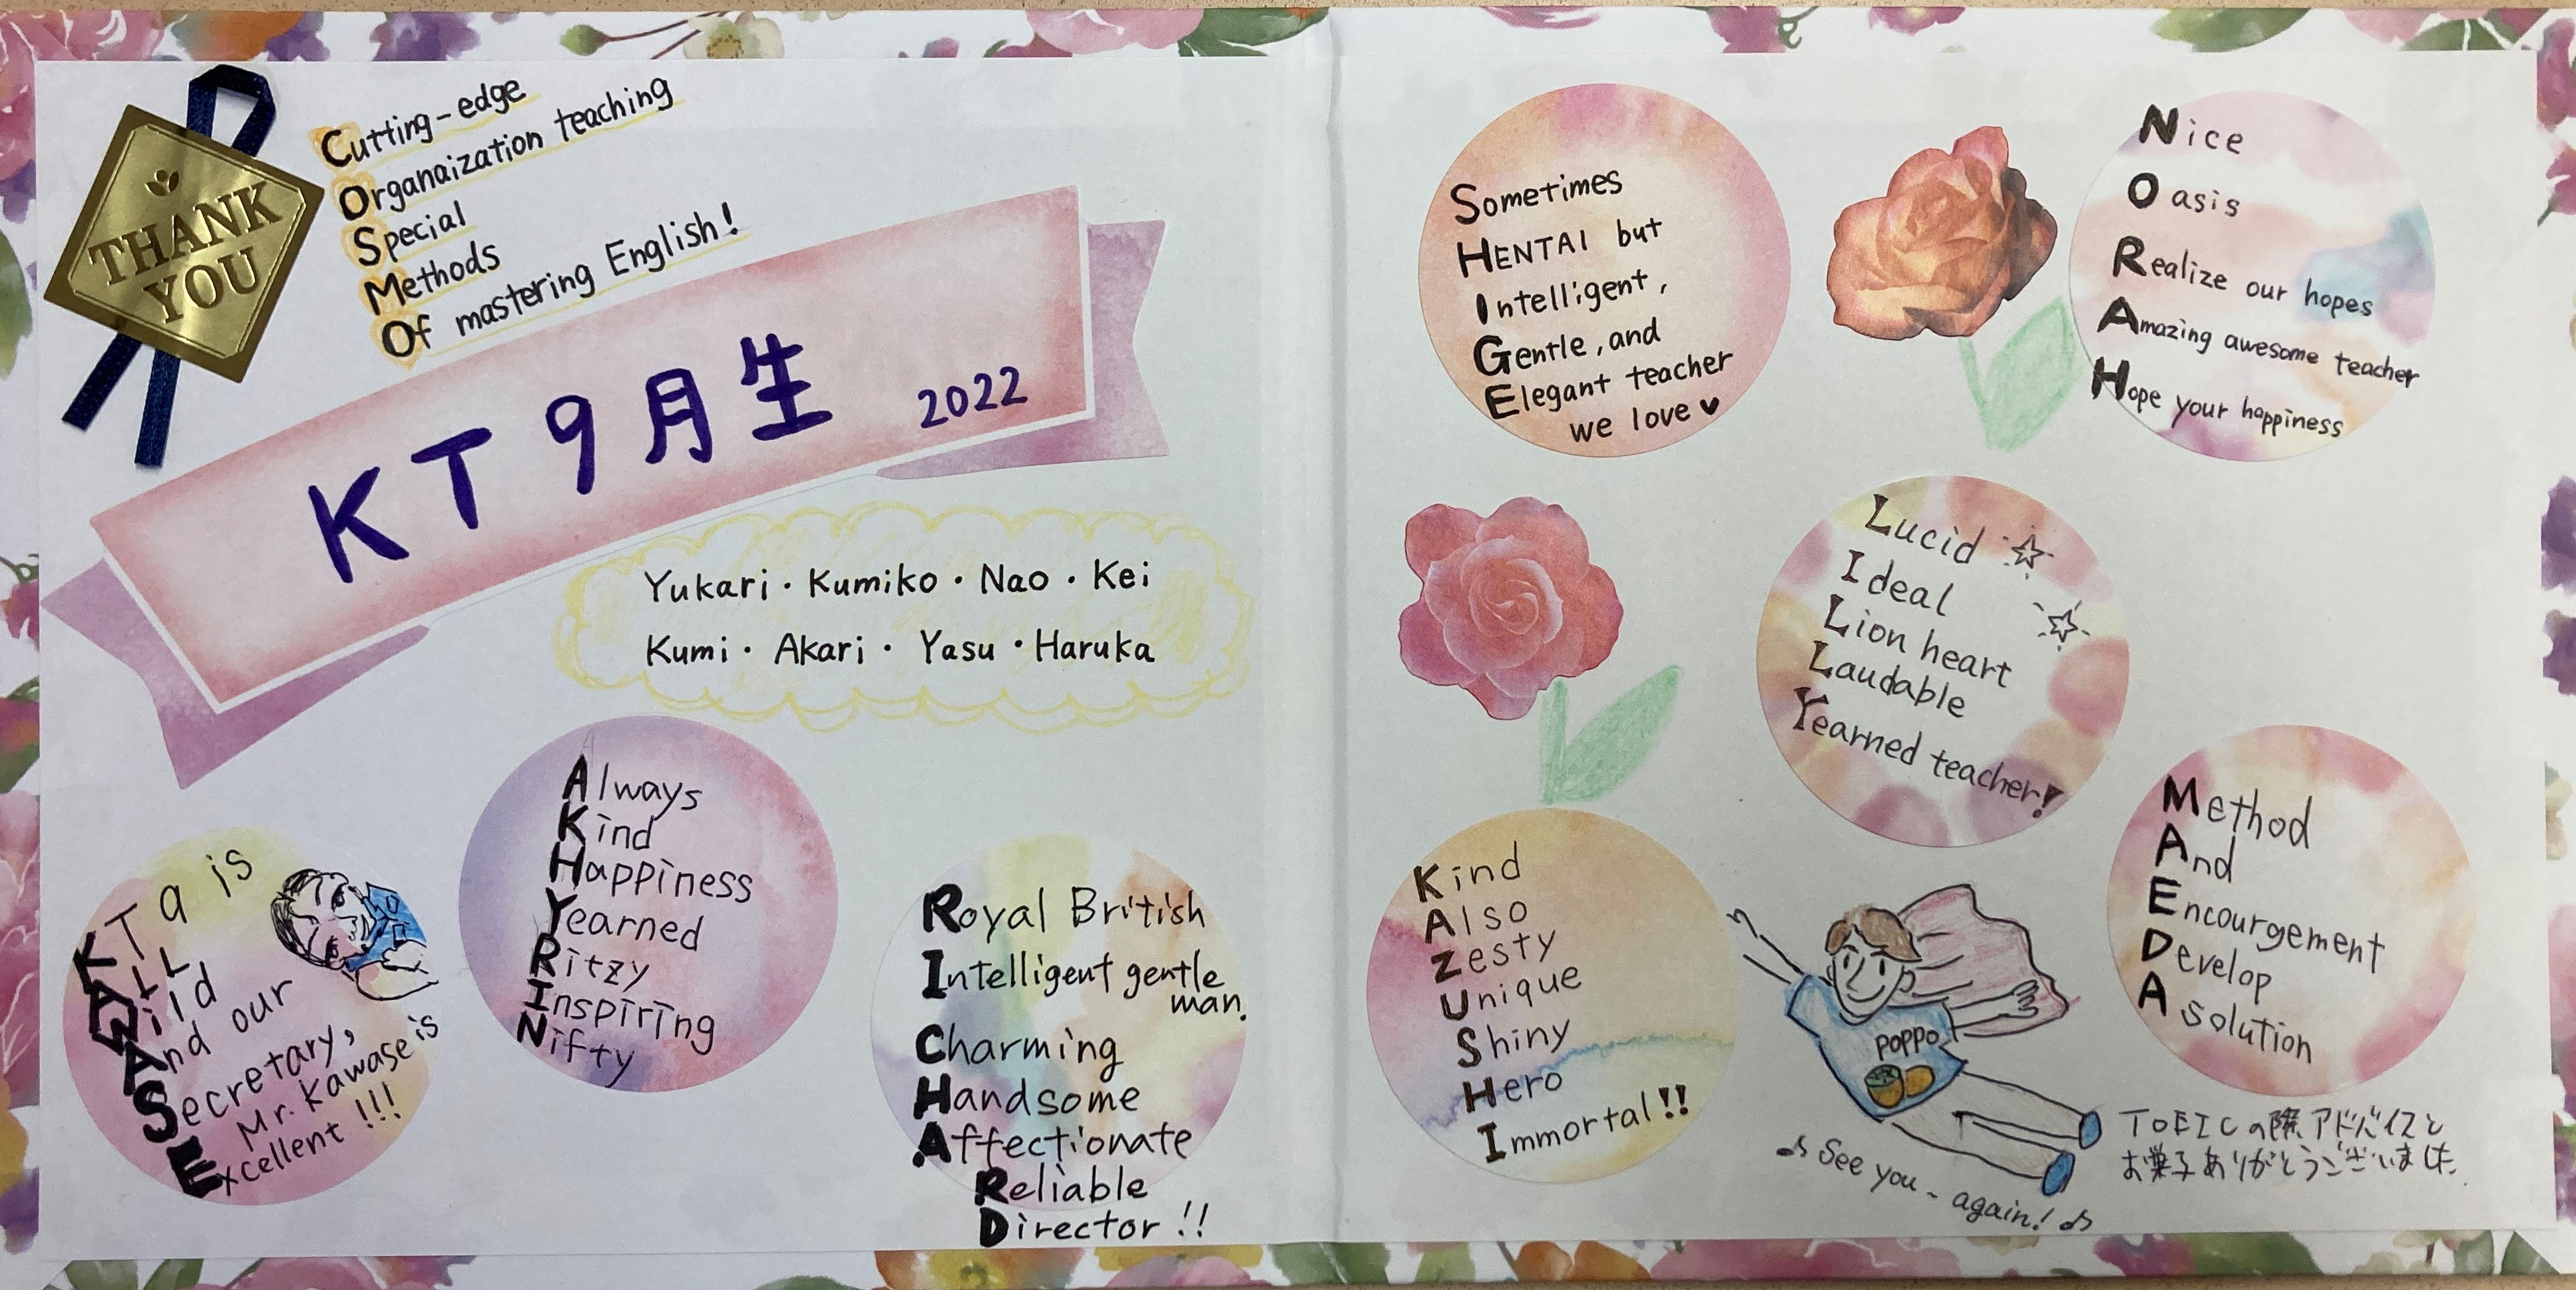 THANK
YOU
Cutting-edge
Organaization teaching
Special
Methods
Of mastering English!
KT9月生 2022
Yukari・Kumiko・Nao・Kei
Kumi・Akari・Yasu・Haruka
KTa is
ALL
Wild
And our
Secretary,
Mr. Kawase is
Excellent !!!
Always
Kind
Happiness
Yearned
Ritzy
Inspiring
Nifty
Royal British
Intelligent gentle
man.
Charming
Handsome
Affectionate
Reliable
Director !!
Sometimes
HENTAI but
Intelligent,
Gentle, and
Elegant teacher
we love ♥
Nice
Oasis
Realize our hopes
Amazing awesome teacher
Hope your happiness
Lucid ☆
Ideal
Lion heart ☆
Laudable
Yearned teacher!
Kind
Also
Zesty
Unique
Shiny
Hero
Immortal!!
POPPO
♪ See you~again! ♪
Method
And
Encourgement
Develop
A solution
TOEICの際アドバイスと
お菓子ありがとうございました。